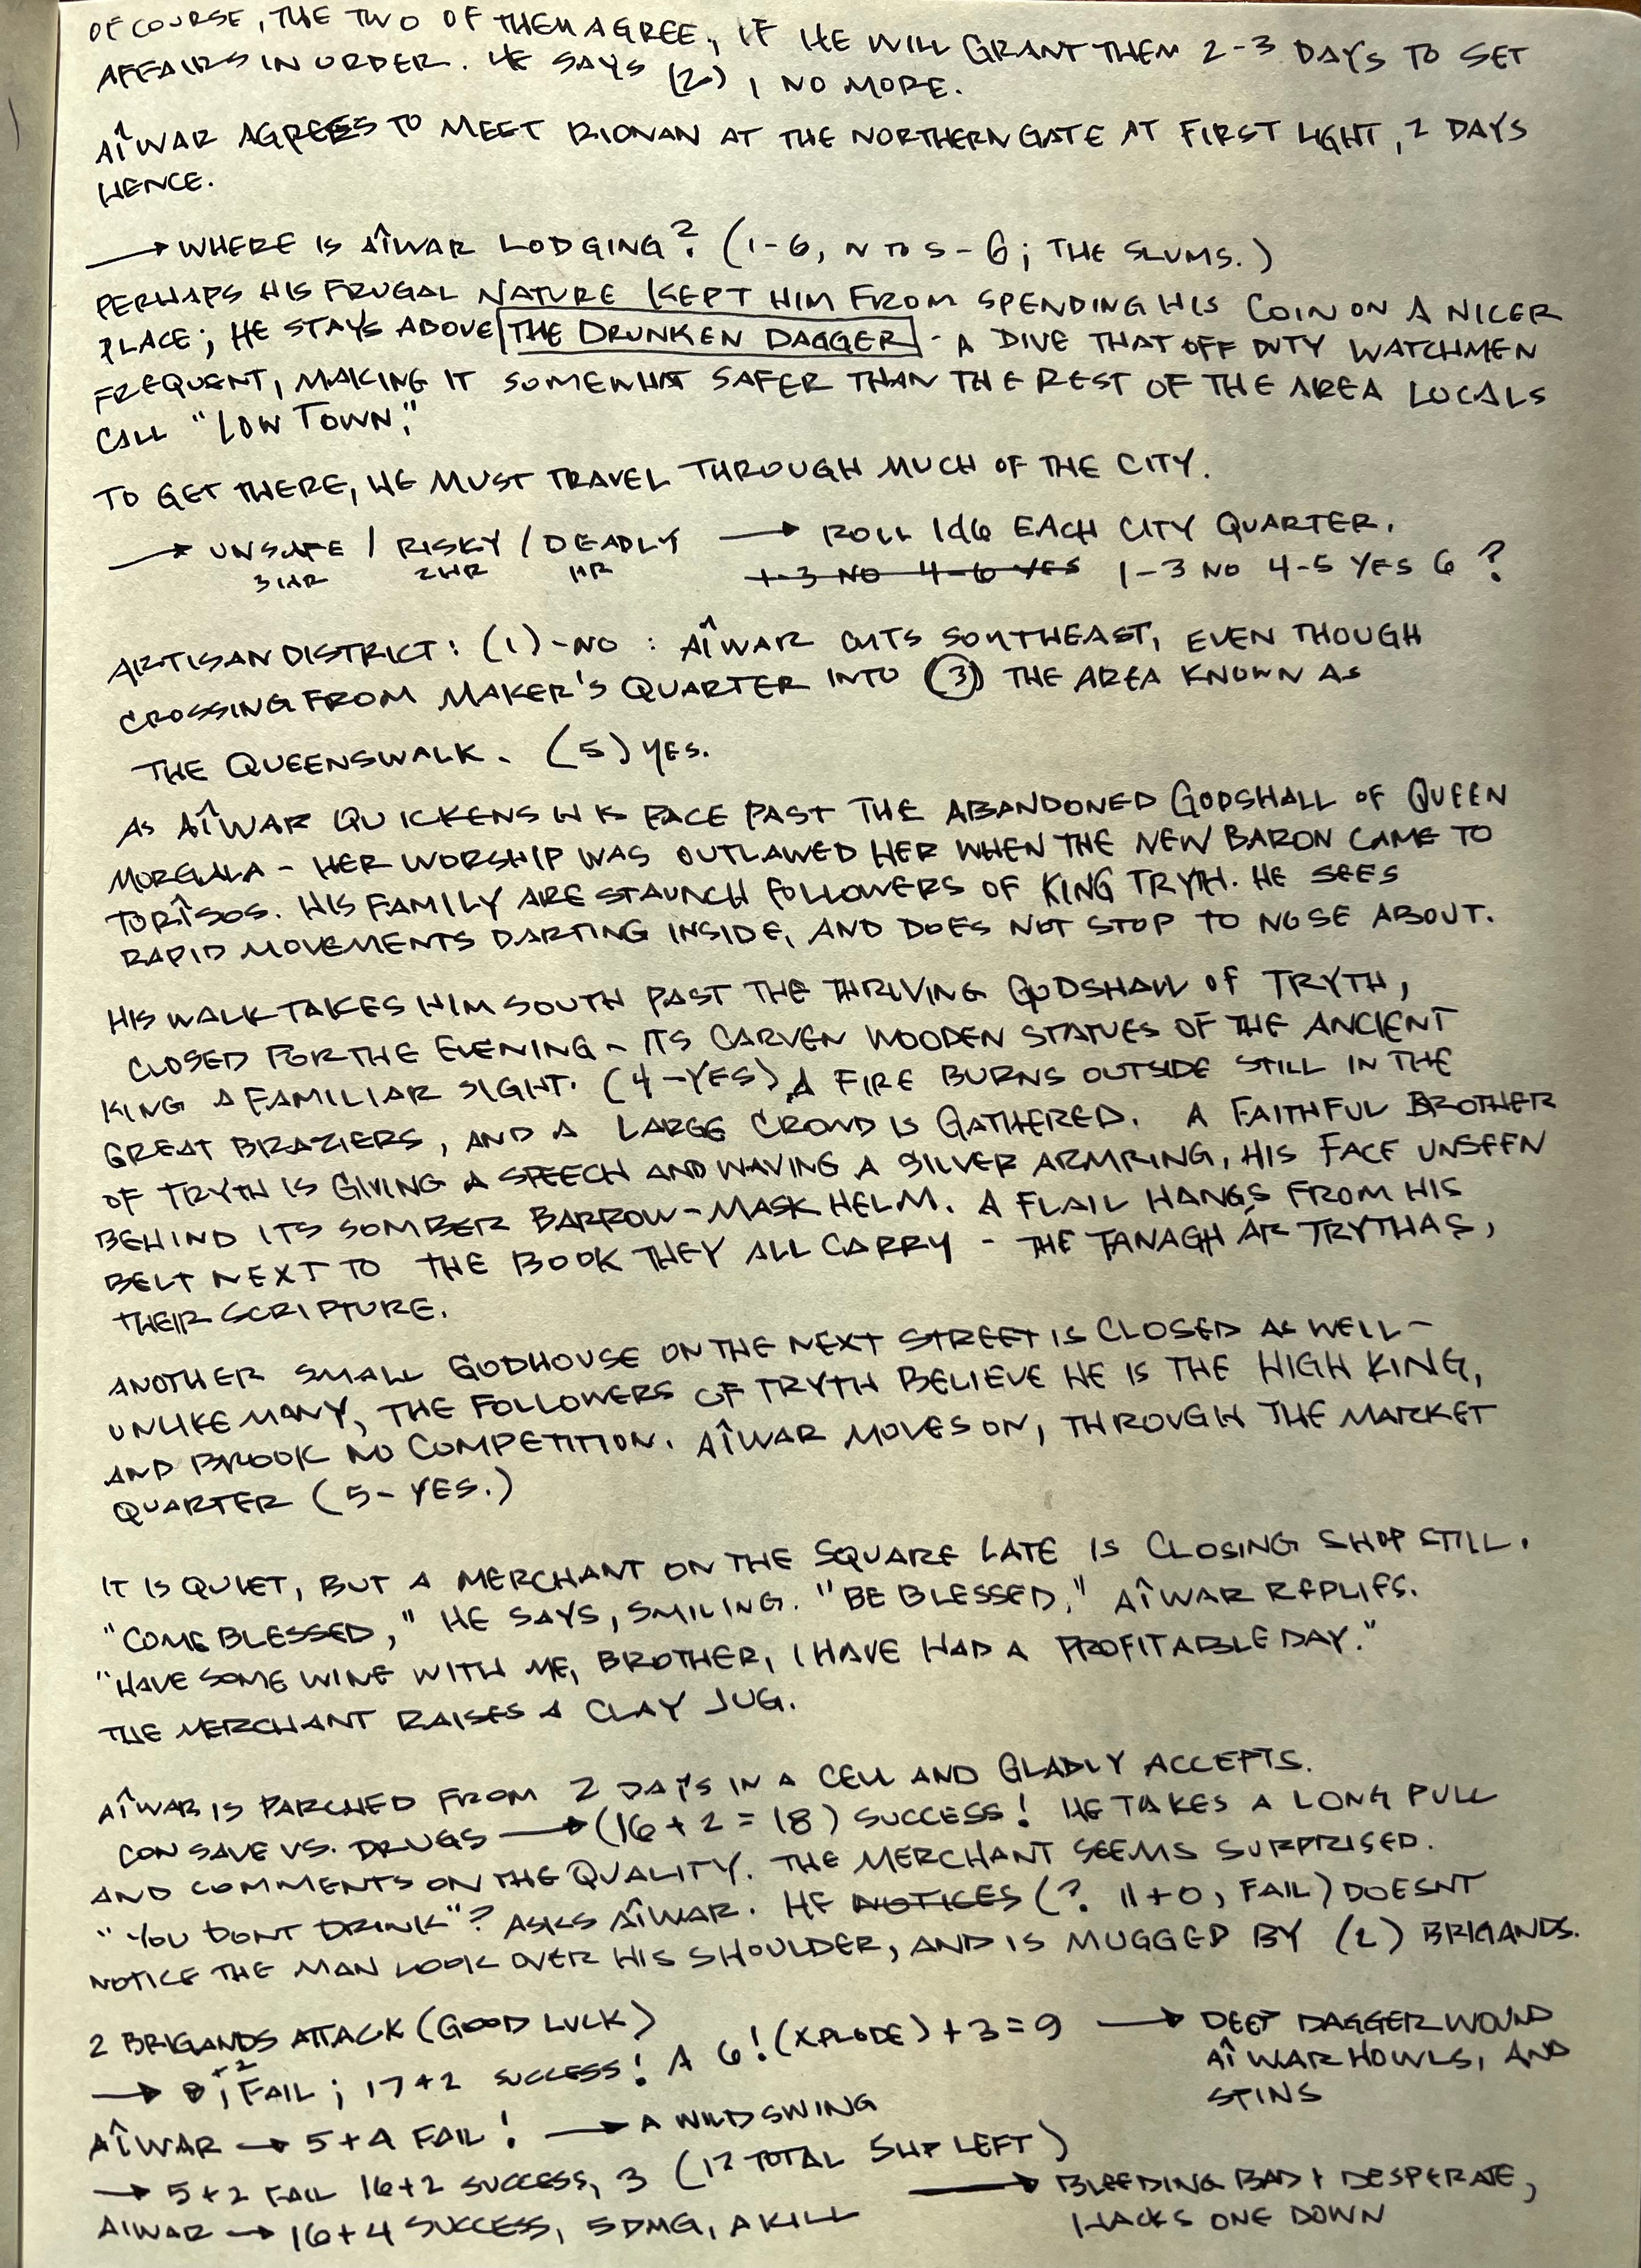 OF COURSE, THE TWO OF THEM AGREE, IF HE WILL GRANT THEM 2-3 DAYS TO SET
AFFAIRS IN ORDER. HE SAYS (2), NO MORE.
AÎWAR AGREES TO MEET RIONAN AT THE NORTHERN GATE AT FIRST LIGHT, 2 DAYS
HENCE.
→ WHERE IS AÎWAR LODGING? (1-6, N TO S - 6; THE SLUMS.)
PERHAPS HIS FRUGAL NATURE KEPT HIM FROM SPENDING HIS COIN ON A NICER
PLACE; HE STAYS ABOVE THE DRUNKEN DAGGER - A DIVE THAT OFF DUTY WATCHMEN
FREQUENT, MAKING IT SOMEWHAT SAFER THAN THE REST OF THE AREA LOCALS
CALL "LOW TOWN."
TO GET THERE, HE MUST TRAVEL THROUGH MUCH OF THE CITY.
→ UNSAFE / RISKY / DEADLY → ROLL 1d6 EACH CITY QUARTER.
3HR 2HR 1HR 1-3 NO 4-6 YES 1-3 NO 4-5 YES 6 ?
ARTISAN DISTRICT: (1)-NO : AÎWAR CUTS SOUTHEAST, EVEN THOUGH
CROSSING FROM MAKER'S QUARTER INTO (3) THE AREA KNOWN AS
THE QUEENSWALK. (5) YES.
AS AÎWAR QUICKENS HIS PACE PAST THE ABANDONED GODSHALL OF QUEEN
MORGALA - HER WORSHIP WAS OUTLAWED HER WHEN THE NEW BARON CAME TO
TORÎSOS. HIS FAMILY ARE STAUNCH FOLLOWERS OF KING TRYTH. HE SEES
RAPID MOVEMENTS DARTING INSIDE, AND DOES NOT STOP TO NOSE ABOUT.
HIS WALK TAKES HIM SOUTH PAST THE THRIVING GODSHALL OF TRYTH,
CLOSED FOR THE EVENING - ITS CARVEN WOODEN STATUES OF THE ANCIENT
KING A FAMILIAR SIGHT. (4-YES) A FIRE BURNS OUTSIDE STILL IN THE
GREAT BRAZIERS, AND A LARGE CROWD IS GATHERED. A FAITHFUL BROTHER
OF TRYTH IS GIVING A SPEECH AND WAVING A SILVER ARMRING, HIS FACE UNSEEN
BEHIND ITS SOMBER BARROW-MASK HELM. A FLAIL HANGS FROM HIS
BELT NEXT TO THE BOOK THEY ALL CARRY - THE TANAGH ÁR TRYTHAS,
THEIR SCRIPTURE.
ANOTHER SMALL GODHOUSE ON THE NEXT STREET IS CLOSED AS WELL -
UNLIKE MANY, THE FOLLOWERS OF TRYTH BELIEVE HE IS THE HIGH KING,
AND BROOK NO COMPETITION. AÎWAR MOVES ON, THROUGH THE MARKET
QUARTER (5-YES.)
IT IS QUIET, BUT A MERCHANT ON THE SQUARE LATE IS CLOSING SHOP STILL.
"COME BLESSED," HE SAYS, SMILING. "BE BLESSED," AÎWAR REPLIES.
"HAVE SOME WINE WITH ME, BROTHER, I HAVE HAD A PROFITABLE DAY."
THE MERCHANT RAISES A CLAY JUG.
AÎWAR IS PARCHED FROM 2 DAYS IN A CELL AND GLADLY ACCEPTS.
CON SAVE VS. DRUGS → (16+2=18) SUCCESS! HE TAKES A LONG PULL
AND COMMENTS ON THE QUALITY. THE MERCHANT SEEMS SURPRISED.
"YOU DONT DRINK"? ASKS AÎWAR. HE NOTICES (?. 11+0, FAIL) DOESNT
NOTICE THE MAN LOOK OVER HIS SHOULDER, AND IS MUGGED BY (2) BRIGANDS.
2 BRIGANDS ATTACK (GOOD LUCK)
→ 8+2; FAIL; 17+2 SUCCESS! A 6! (XPLODE) +3=9 → DEEP DAGGER WOUND
AÎWAR HOWLS, AND
STINS
AÎWAR → 5+4 FAIL! → A WILD SWING
→ 5+2 FAIL 16+2 SUCCESS, 3 (12 TOTAL 5HP LEFT)
→ BLEEDING BAD + DESPERATE,
HACKS ONE DOWN
AIWAR → 16+4 SUCCESS, 5 DMG, A KILL